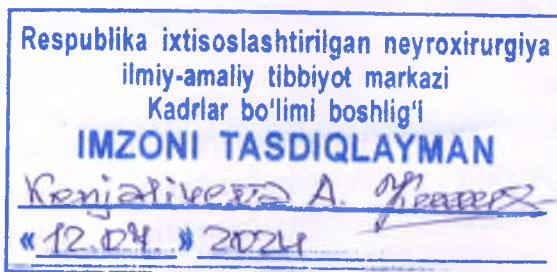 Respublika ixtisoslashtirilgan neyroxirurgiya
ilmiy-amaliy tibbiyot markazi
Kadrlar bo'limi boshlig'i
IMZONI TASDIQLAYMAN
A.
«12.04.» 2024